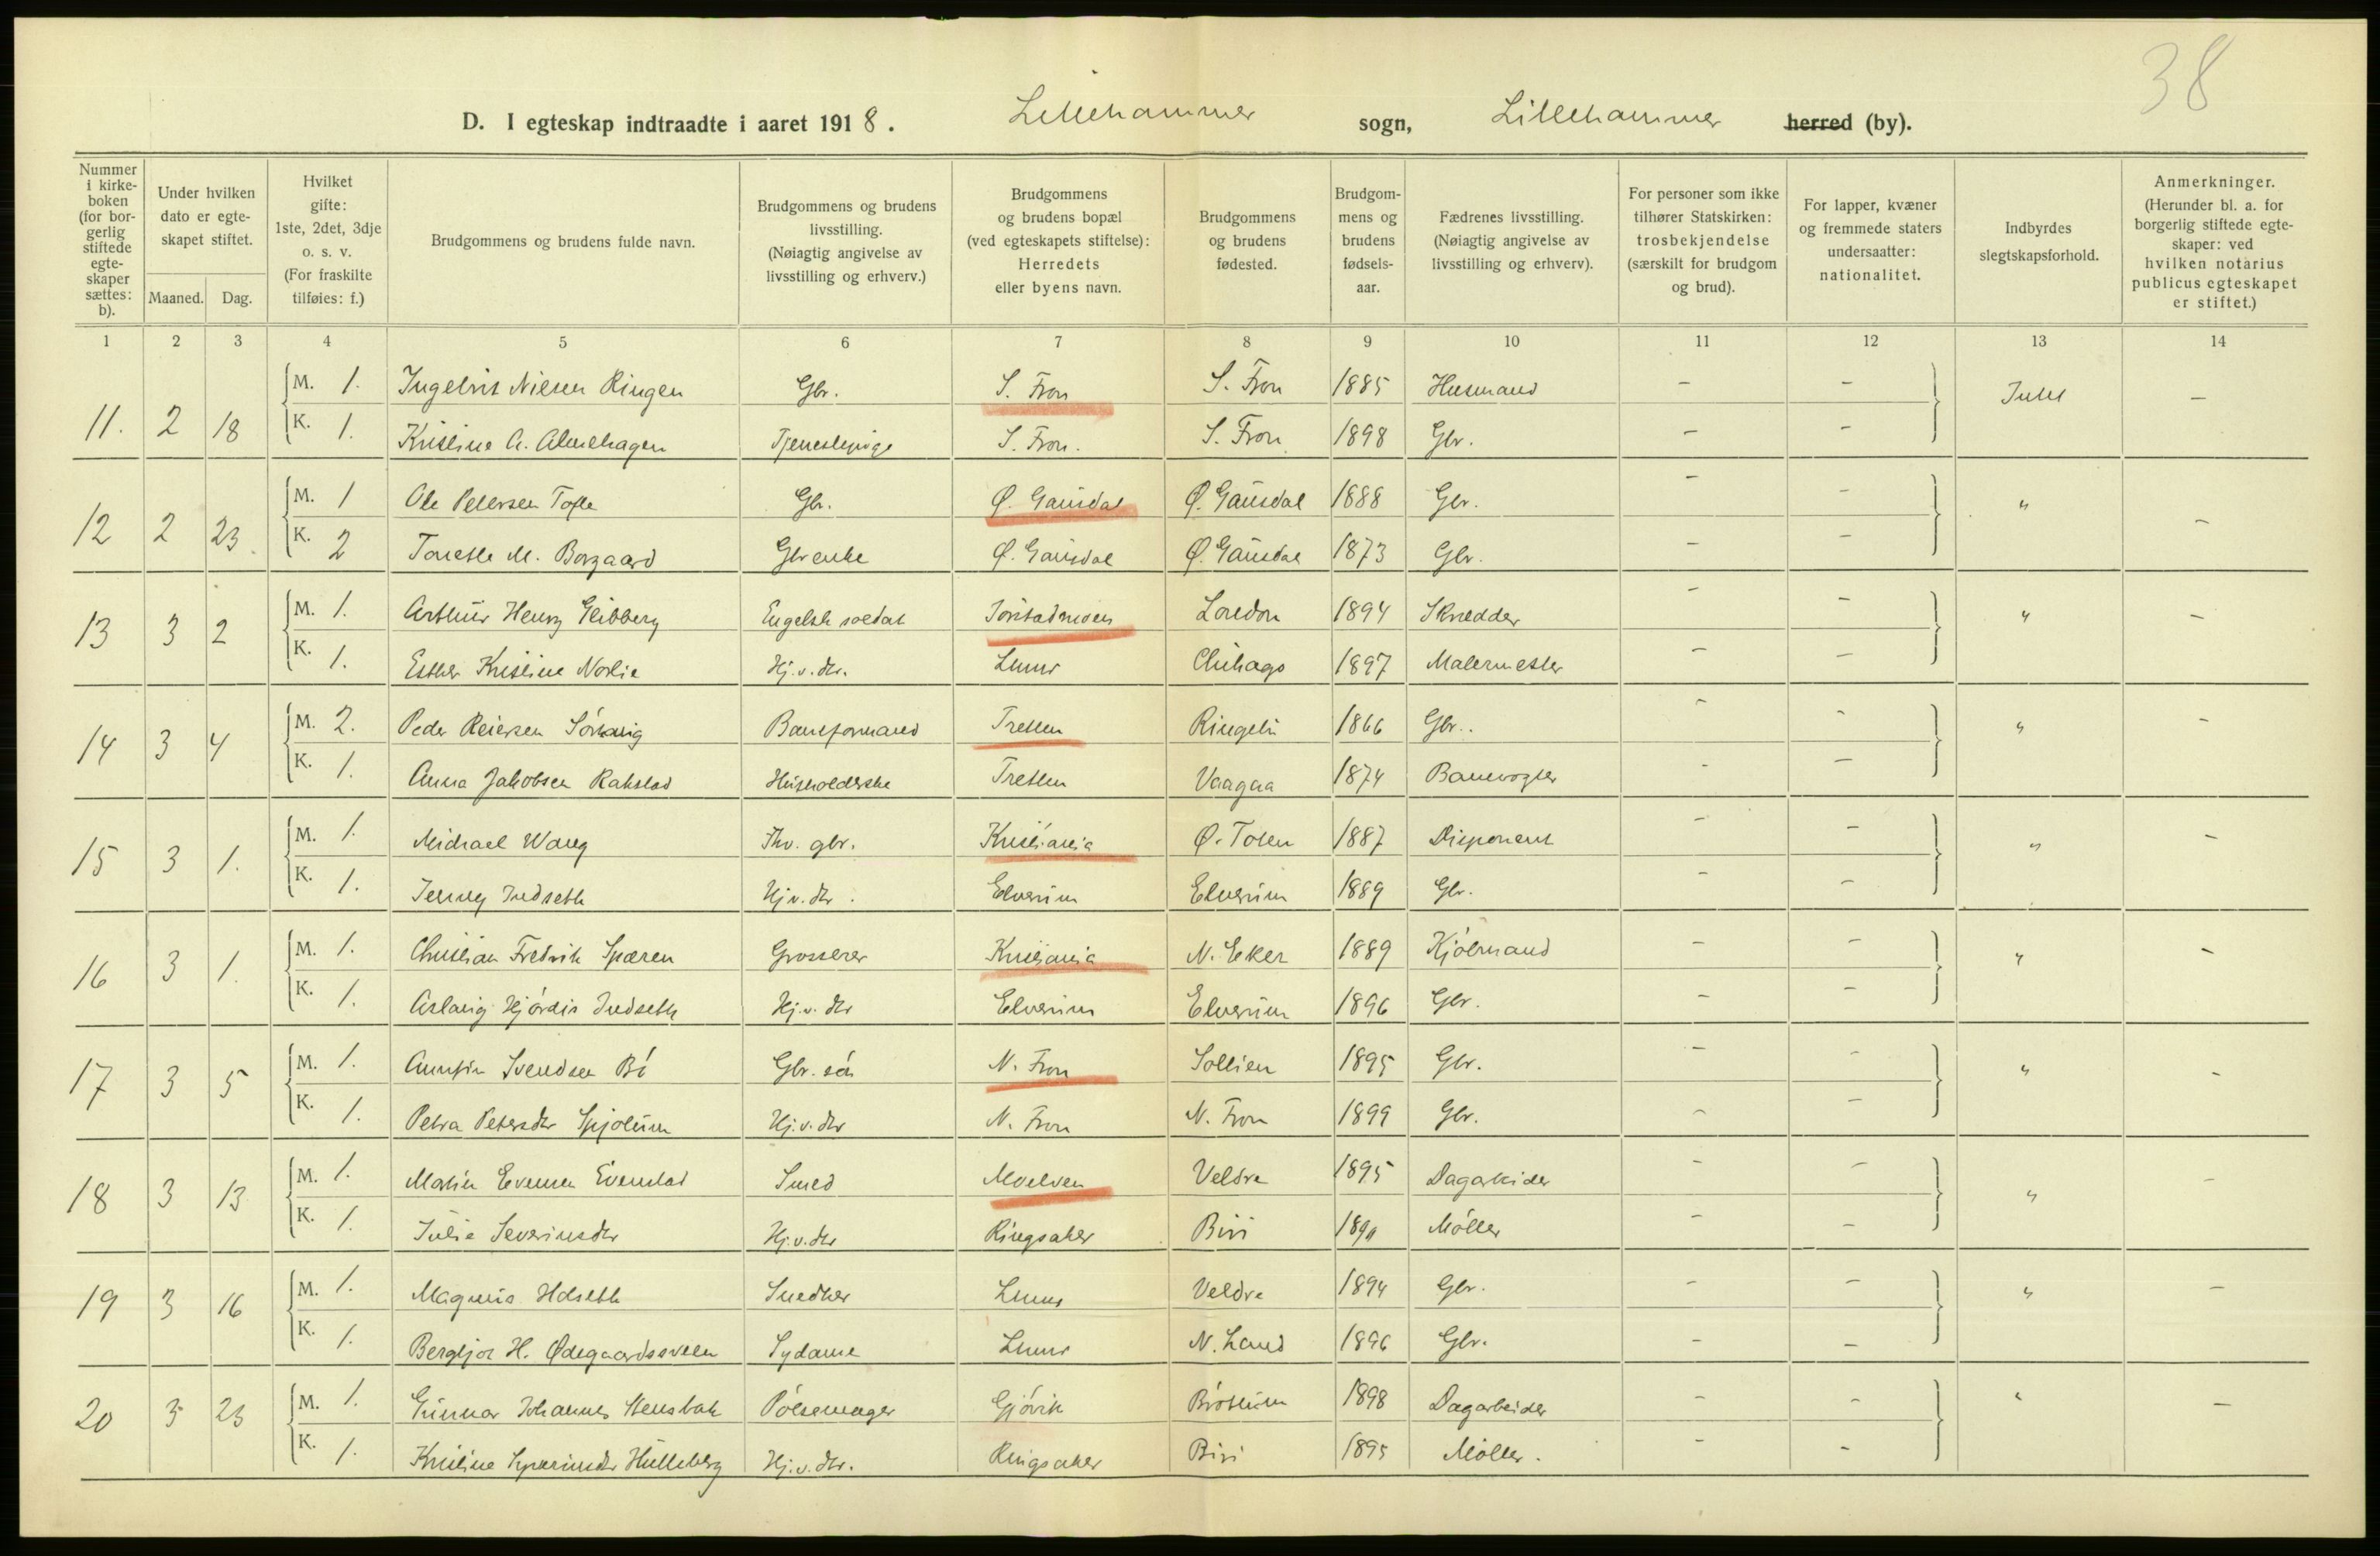 38
D. I egteskap indtraadte i aaret 1918. Lillehammer sogn, Lillehammer herred (by).
Nummer i kirkeboken (for borgerlig stiftede egteskaper sættes: b). Under hvilken dato er egteskapet stiftet. Maaned. Dag. Hvilket gifte: 1ste, 2det, 3dje o. s. v. (For fraskilte tilføies: f.) Brudgommens og brudens fulde navn. Brudgommens og brudens livsstilling. (Nøiagtig angivelse av livsstilling og erhverv.) Brudgommens og brudens bopæl (ved egteskapets stiftelse): Herredets eller byens navn. Brudgommens og brudens fødested. Brudgommens og brudens fødselsaar. Fædrenes livsstilling. (Nøiagtig angivelse av livsstilling og erhverv). For personer som ikke tilhører Statskirken: trosbekjendelse (særskilt for brudgom og brud). For lapper, kvæner og fremmede staters undersaatter: nationalitet. Indbyrdes slegtskapsforhold. Anmerkninger. (Herunder bl. a. for borgerlig stiftede egteskaper: ved hvilken notarius publicus egteskapet er stiftet.)
1 2 3 4 5 6 7 8 9 10 11 12 13 14
11. 2 18 M. 1. Ingelvis Nilsen Ringen Gbr. S. Fron S. Fron 1885 Husmand – – Intet –
K. 1. Kristine A. Almehagen Tjenestepige S. Fron. S. Fron 1898 Gbr. – –
12 2 23. M. 1 Ole Petersen Tofte Gbr. Ø. Gausdal Ø. Gausdal 1888 Gbr. – – " –
K. 2 Tonette M. Borgaard Gbrenke Ø. Gausdal Ø. Gausdal 1873 Gbr. – –
13 3 2 M. 1. Arthur Henry Glibbery Engelsk soldat Jørstadmoen London 1894 Skredder – – " –
K. 1. Esther Kristine Norlie Hj.v.dtr. Lhmr Chikago 1897 Malermester – –
14 3 4 M. 2. Peder Reiersen Baneformand Tretten Ringebu 1866 Gbr. – – " –
K. 1. Anna Jakobsen Rakstad Husholderske Tretten Vaagaa 1874 Banevogter – –
15 3 1. M. 1. Michael Wang Fhv. gbr. Kristiania Ø. Toten 1887 Disponent – – " –
K. 1. Jenny Indseth Hj.v.dtr. Elverum Elverum 1889 Gbr. – –
16 3 1. M. 1. Christian Fredrik Grosserer Kristiania N. Eker 1889 Kjøbmand – – " –
K. 1. Aslaug Hjördis Indseth Hj.v.dtr Elverum Elverum 1896 Gbr. – –
17 3 5 M. 1. Annfin Svendsen Bö Gbr. sön N. Fron Sollien 1895 Gbr. – – " –
K. 1. Petra Petersdtr Hj.v.dtr N. Fron N. Fron 1899 Gbr. – –
18 3 13 M. 1. Martin Evensen Evenstad Smed Moelven Veldre 1895 Dagarbeider – – " –
K. 1. Julie Severinsdtr Hj.v.dtr Ringsaker Biri Möller – –
19 3 16 M. 1. Magnus Holseth Snedker Lhmr Veldre 1894 Gbr. – – " –
K. 1. Bergljot H. Ødegaardssveen Sydame Lhmr N. Land 1896 Gbr. – –
20 3 23 M. 1. Gunnar Johannes Stensbak Pölsemager Gjövik Bröttum 1898 Dagarbeider – – " –
K. 1. Kristine Hulleberg Hj.v.dtr. Ringsaker Biri 1895 Möller. – –